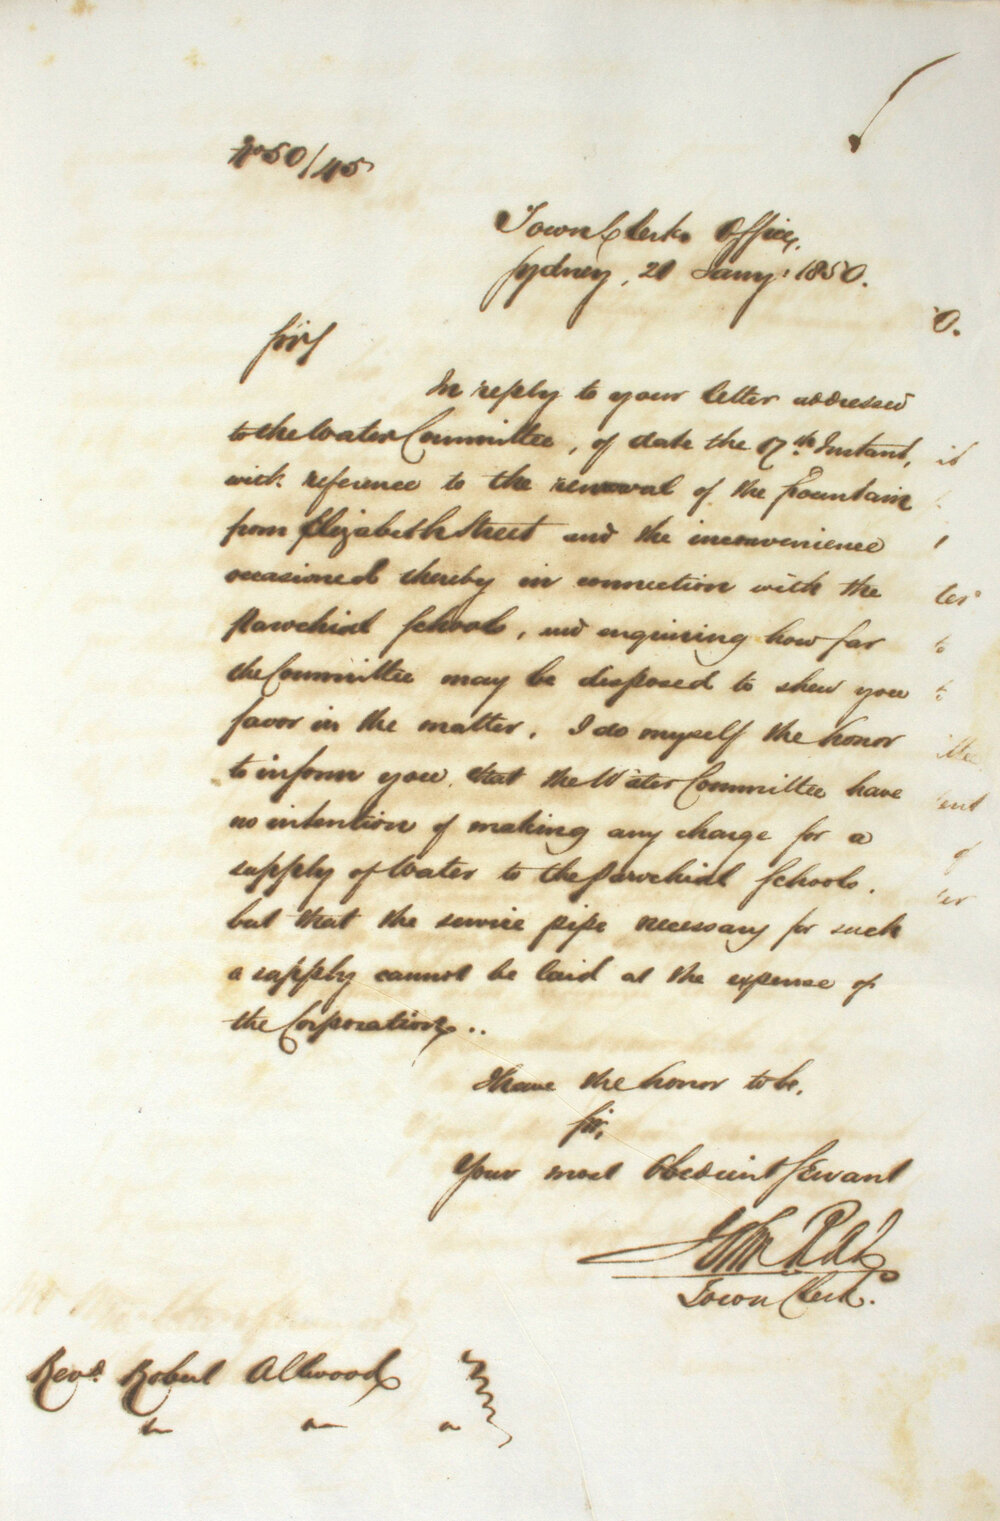 No 50/45
Town Clerks Office,
Sydney, 21 Jany. 1850.
Sir,
In reply to your letter addressed
to the Water Committee, of date the 17th Instant,
with reference to the removal of the fountain
from Elizabeth Street and the inconvenience
occasioned thereby in connection with the
Parochial Schools, and enquiring how far
the Committee may be disposed to shew you
favor in the matter. I do myself the honor
to inform you, that the Water Committee have
no intention of making any charge for a
supply of Water to the Parochial Schools.
but that the service pipe necessary for such
a supply cannot be laid at the expense of
the Corporation..
I have the honor to be,
Sir,
Your most Obedient Servant
John Rae
Town Clerk.
Revd. Robert Allwood